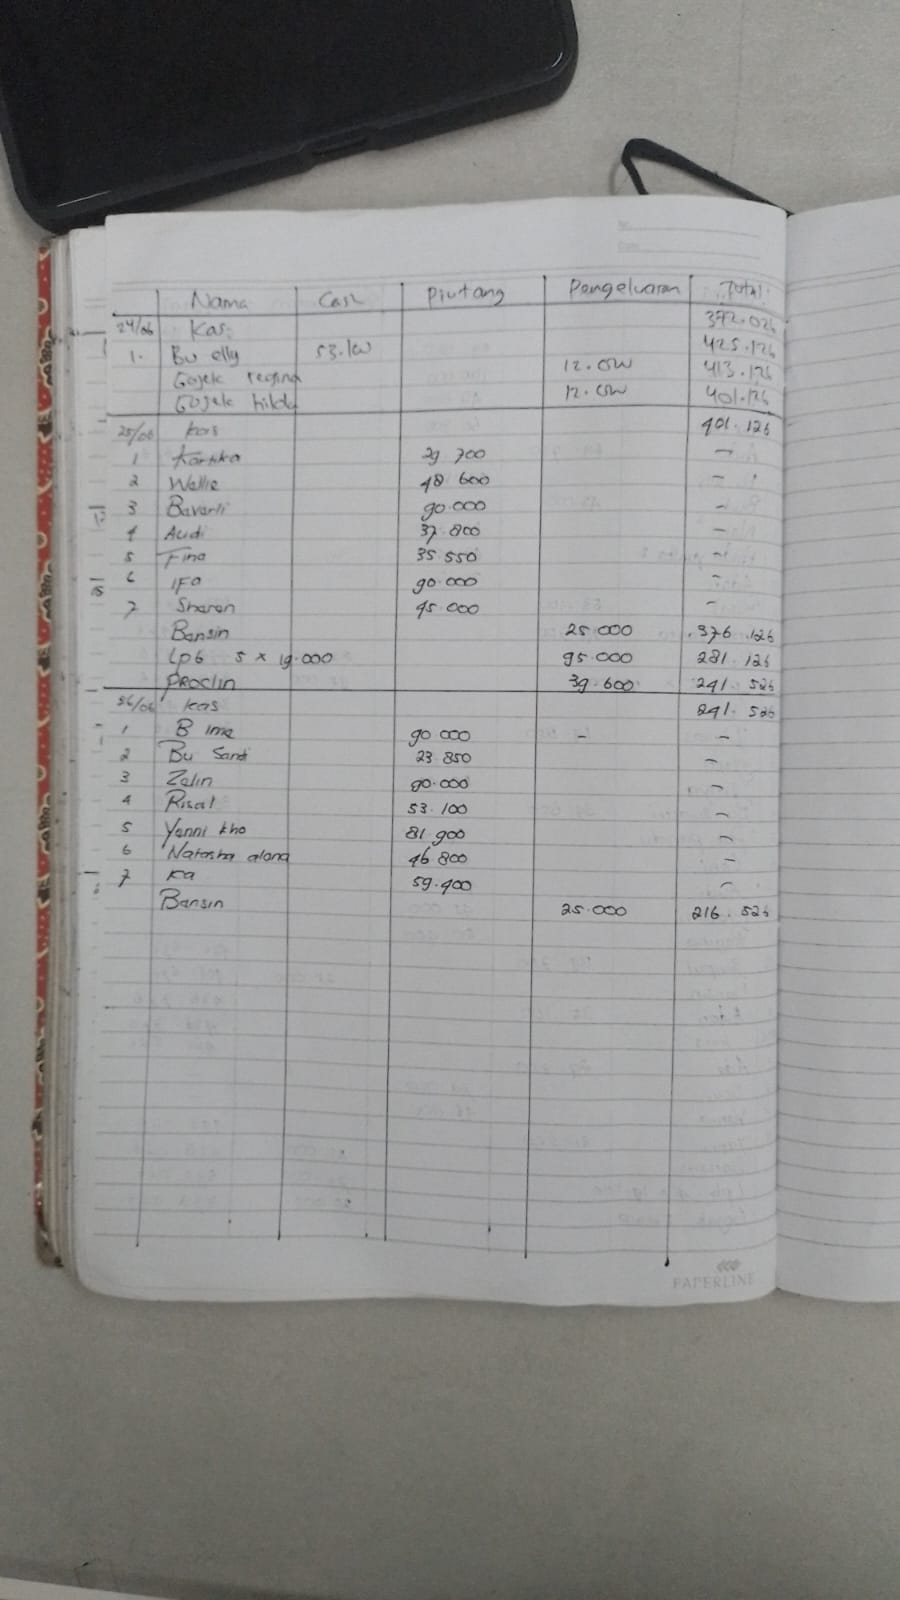 Nama Cash Piutang Pengeluaran Total
24/06 Kas 372.026
1. Bu elly 53.100 425.126
Gojek regina 12.000 413.126
Gojek hilda 12.000 401.126
25/06 kas 401.126
1 Kartika 29 700 -
2 Wellie 48 600 -
3 Bavarli 90.000 -
4 Audi 37.800 -
5 Fina 35.550 -
6 IFA 90.000 -
7 Sharen 45.000 -
Bensin 25.000 376.126
LPG 5 x 19.000 95.000 281.126
PROCLIN 39.600 241.526
26/06 kas 241.526
1 B ima 90 000 - -
2 Bu Santi 23.850 -
3 Zelin 90.000 -
4 Risal 53.100 -
5 Yenni kho 81 900 -
6 Natasha alona 46 800 -
7 Ka 59.400 -
Bensin 25.000 216.526
PAPERLINE